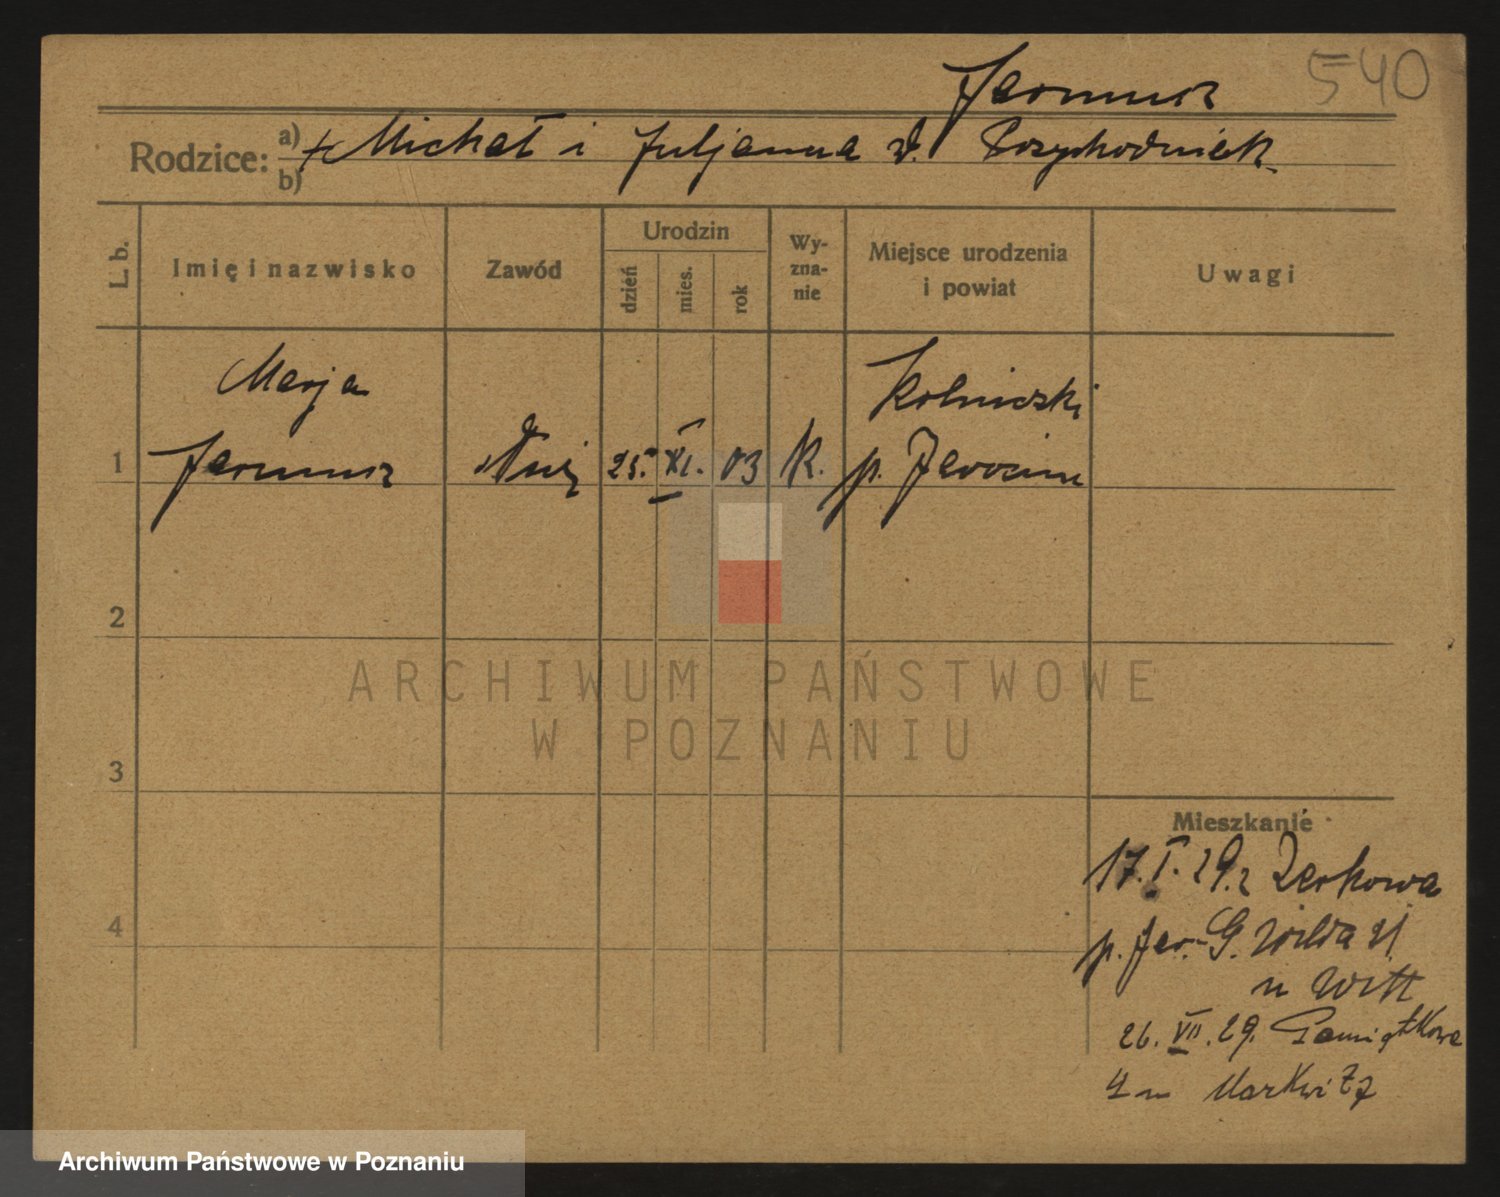 540
Jarmusz
Rodzice: a) + Michał i Juljanna z d. Przychodniak
b)
L. b. Imię i nazwisko Zawód Urodzin dzień mies. rok Wyznanie Miejsce urodzenia i powiat Uwagi
Marja Kolniczki
1 Jarmusz służ 25. XI. 03 K. p. Jarocin
2
ARCHIWUM PAŃSTWOWE
W POZNANIU
3
Mieszkanie
17. I. 29 r Żerkowa
4
p. Jar. G. Wilda 21
u Witt
26. VII. 29. Pamiątkowa
4 u Markwitz
Archiwum Państwowe w Poznaniu